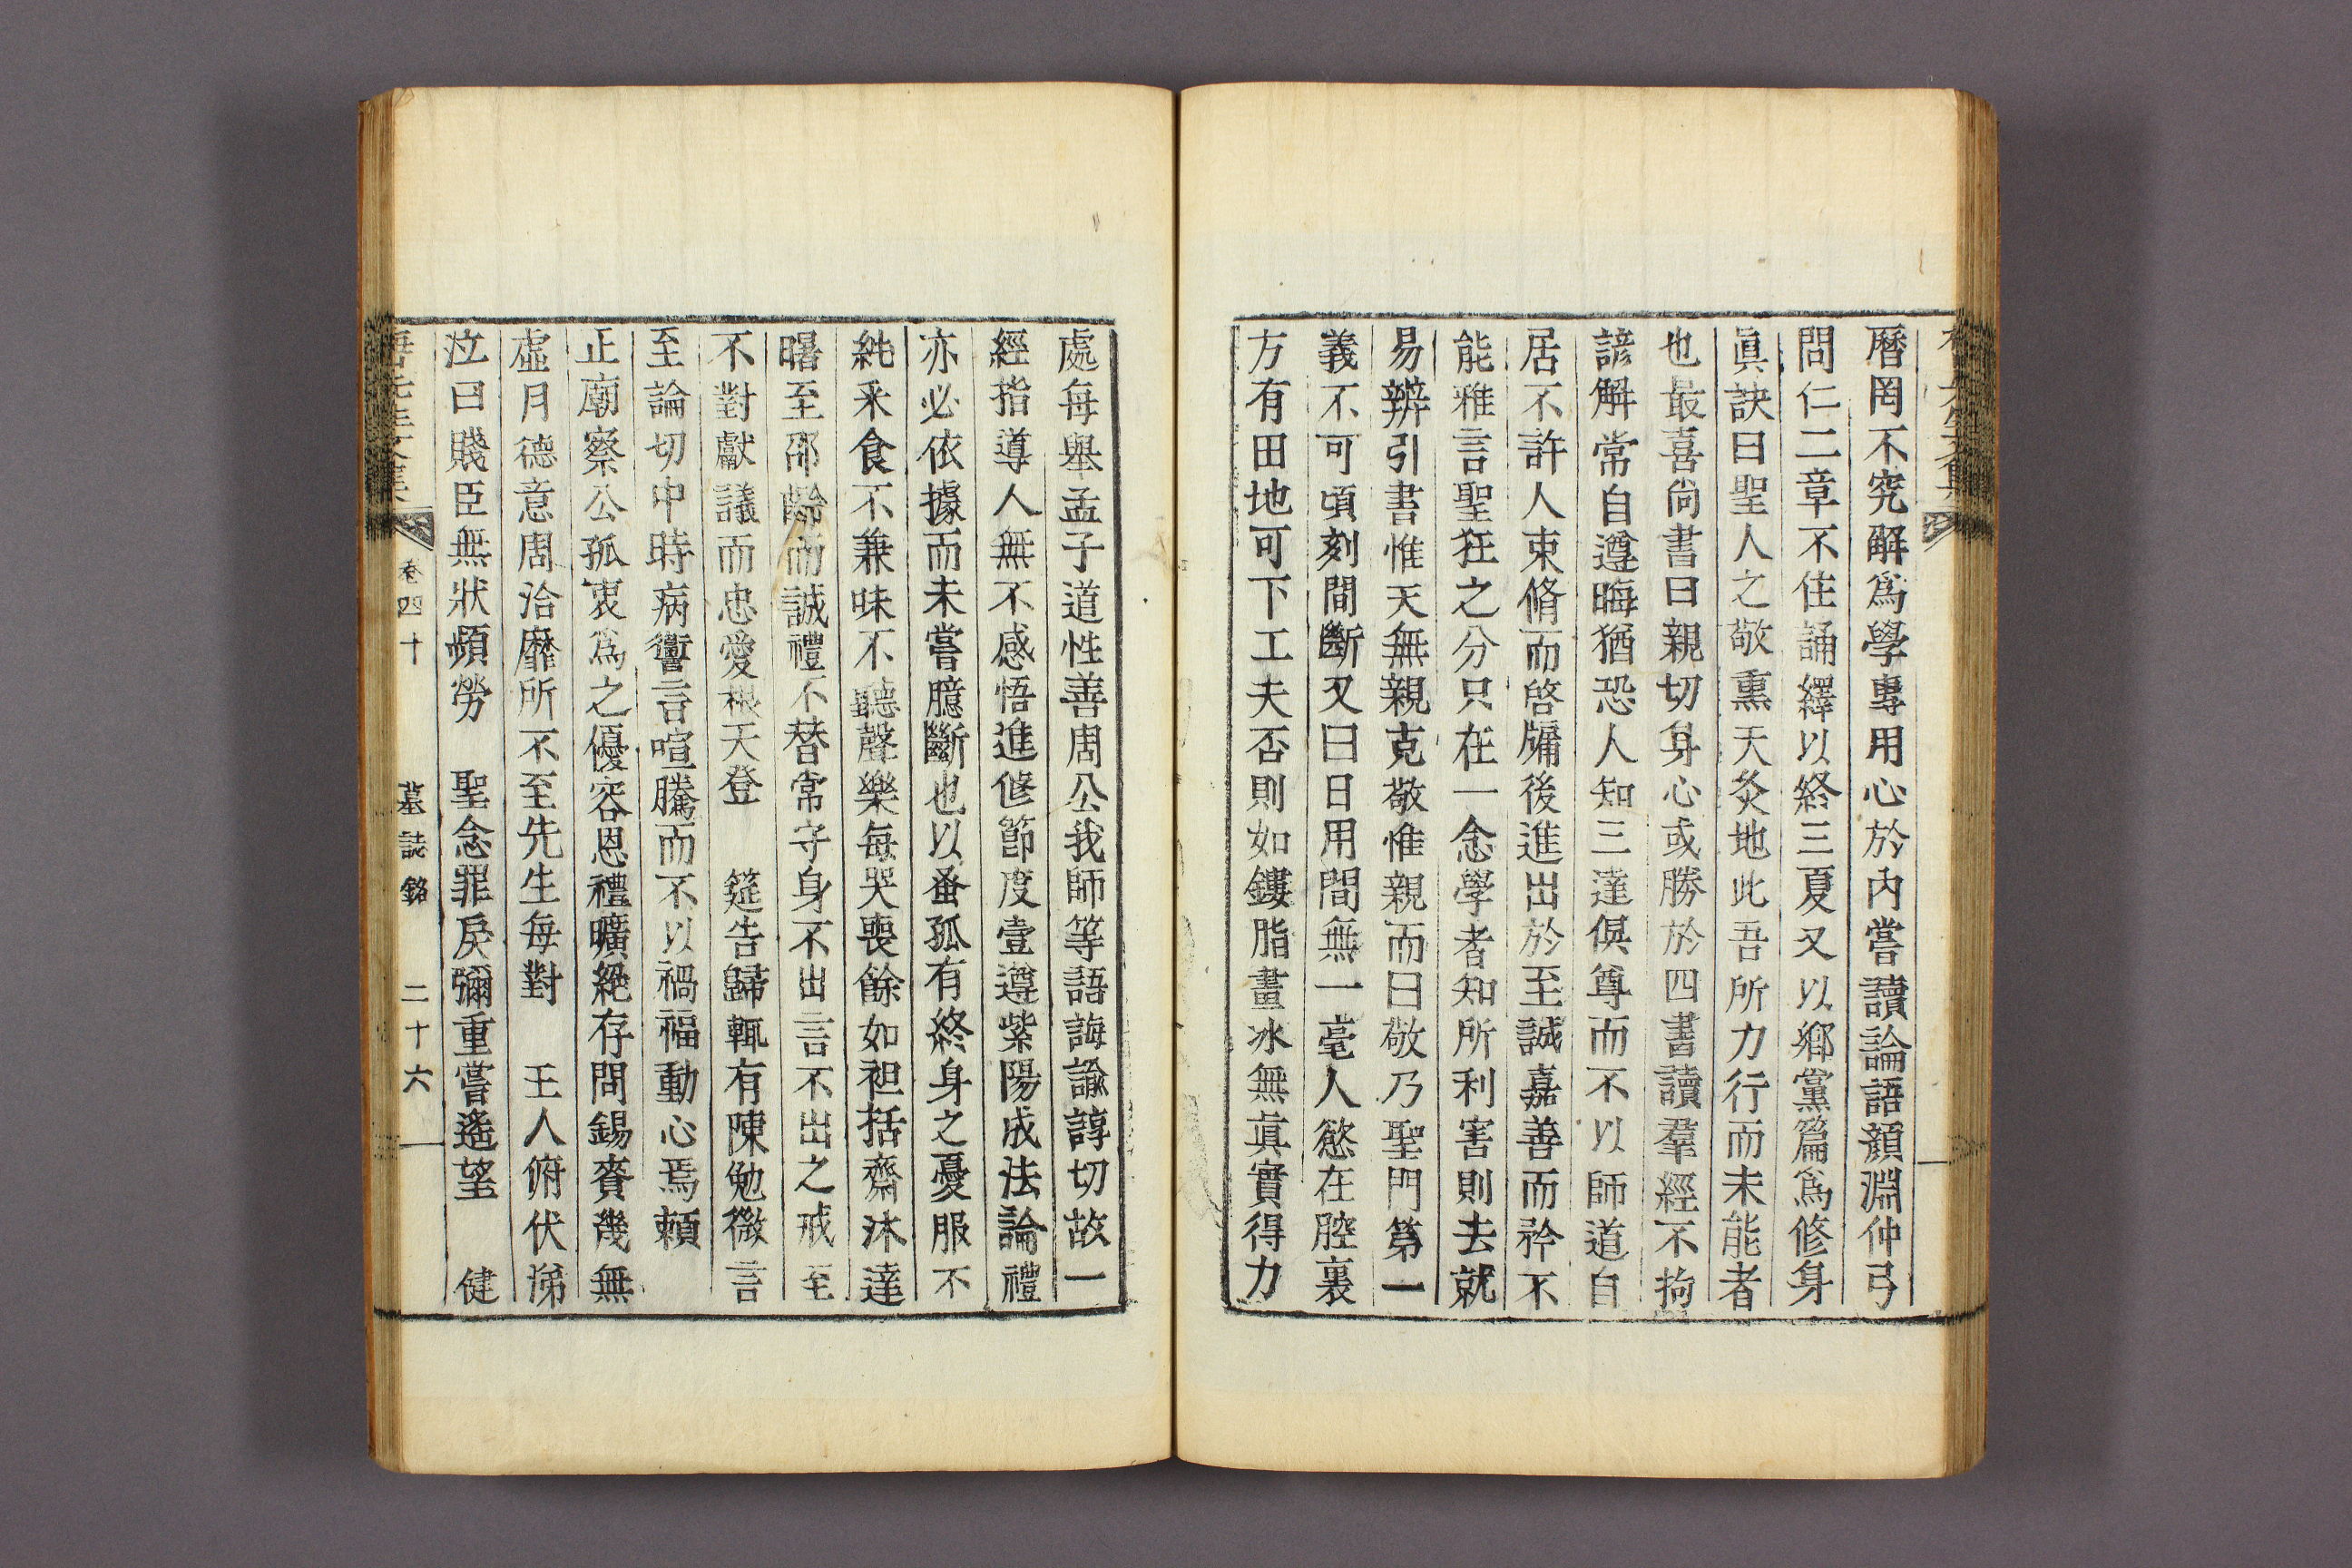 曆罔不究解爲學專用心於內嘗讀論語顏淵仲弓
問仁二章不住誦繹以終三夏又以鄕黨篇爲修身
眞訣曰聖人之敬熏天灸地此吾所力行而未能者
也最喜尙書曰親切身心或勝於四書讀羣經不拘
諺解常自遵晦猶恐人知三達俱尊而不以師道自
居不許人束脩而啓牖後進出於至誠嘉善而矜不
能雅言聖狂之分只在一念學者知所利害則去就
易辨引書惟天無親克敬惟親而曰敬乃聖門第一
義不可頃刻間斷又曰日用間無一毫人慾在腔裏
方有田地可下工夫否則如鏤脂畫冰無眞實得力
處每舉孟子道性善周公我師等語誨諭諄切故一
經指導人無不感悟進修節度壹遵紫陽成法論禮
亦必依據而未嘗臆斷也以蚤孤有終身之憂服不
純采食不兼味不聽聲樂每哭喪餘如袒括齋沐達
曙至邵齡而誠禮不替常守身不出言不出之戒至
不對獻議而忠愛根天登 筵告歸輒有陳勉微言
至論切中時病讏言喧騰而不以禍福動心焉賴
正廟察公孤衷爲之優容恩禮曠絕存問錫賚幾無
虛月德意周洽靡所不至先生每對 王人俯伏涕
泣曰賤臣無狀頻勞 聖念罪戾彌重嘗遙望 健
先生文集 卷四十 墓誌銘 二十六